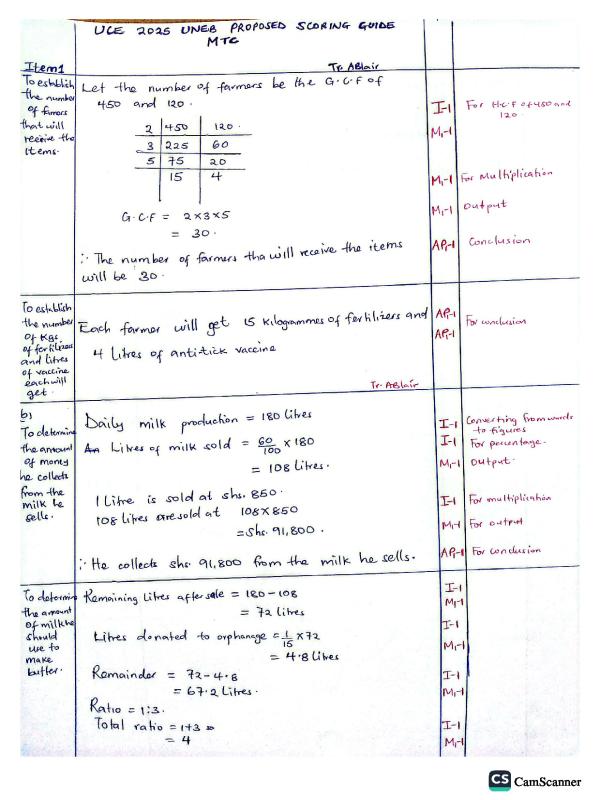 UCE 2025 UNEB PROPOSED SCORING GUIDE
MTC
Tr. ABlair
Item 1
To establish
the number
of farmers
that will
receive the
items.
Let the number of farmers be the G.C.F of
450 and 120.
2 450 120
3 225 60
5 75 20
15 4
G.C.F = 2x3x5
= 30.
∴ The number of farmers tha will receive the items
will be 30.
I-1 For H.C.F of 450 and
120
M1-1
M1-1 For Multiplication
M1-1 Output
AP1-1 Conclusion
To establish
the number
of Kgs
of fertilizers
and litres
of vaccine
each will
get.
Each farmer will get 15 kilogrammes of fertilizers and
4 Litres of antitick vaccine
Tr. ABlair
AP1-1
AP1-1 For conclusion
b)
To determine
the amount
of money
he collects
from the
milk he
sells.
Daily milk production = 180 Litres
Litres of milk sold = 60/100 x 180
= 108 Litres.
1 Litre is sold at shs. 850.
108 Litres are sold at 108x850
= Shs. 91,800.
∴ He collects shs. 91,800 from the milk he sells.
I-1 Converting from words
to figures
I-1 For percentage.
M1-1 Output.
I-1 For multiplication
M1-1 For output
AP1-1 For conclusion
To determine
the amount
of milk he
should
use to
make
butter.
Remaining Litres after sale = 180-108
= 72 litres
Litres donated to orphanage = 1/15 x 72
= 4.8 Litres
Remainder = 72-4.8
= 67.2 Litres.
Ratio = 1:3.
Total ratio = 1+3
= 4
I-1
M1-1
I-1
M1-1
I-1
M1-1
I-1
M1-1
CS CamScanner